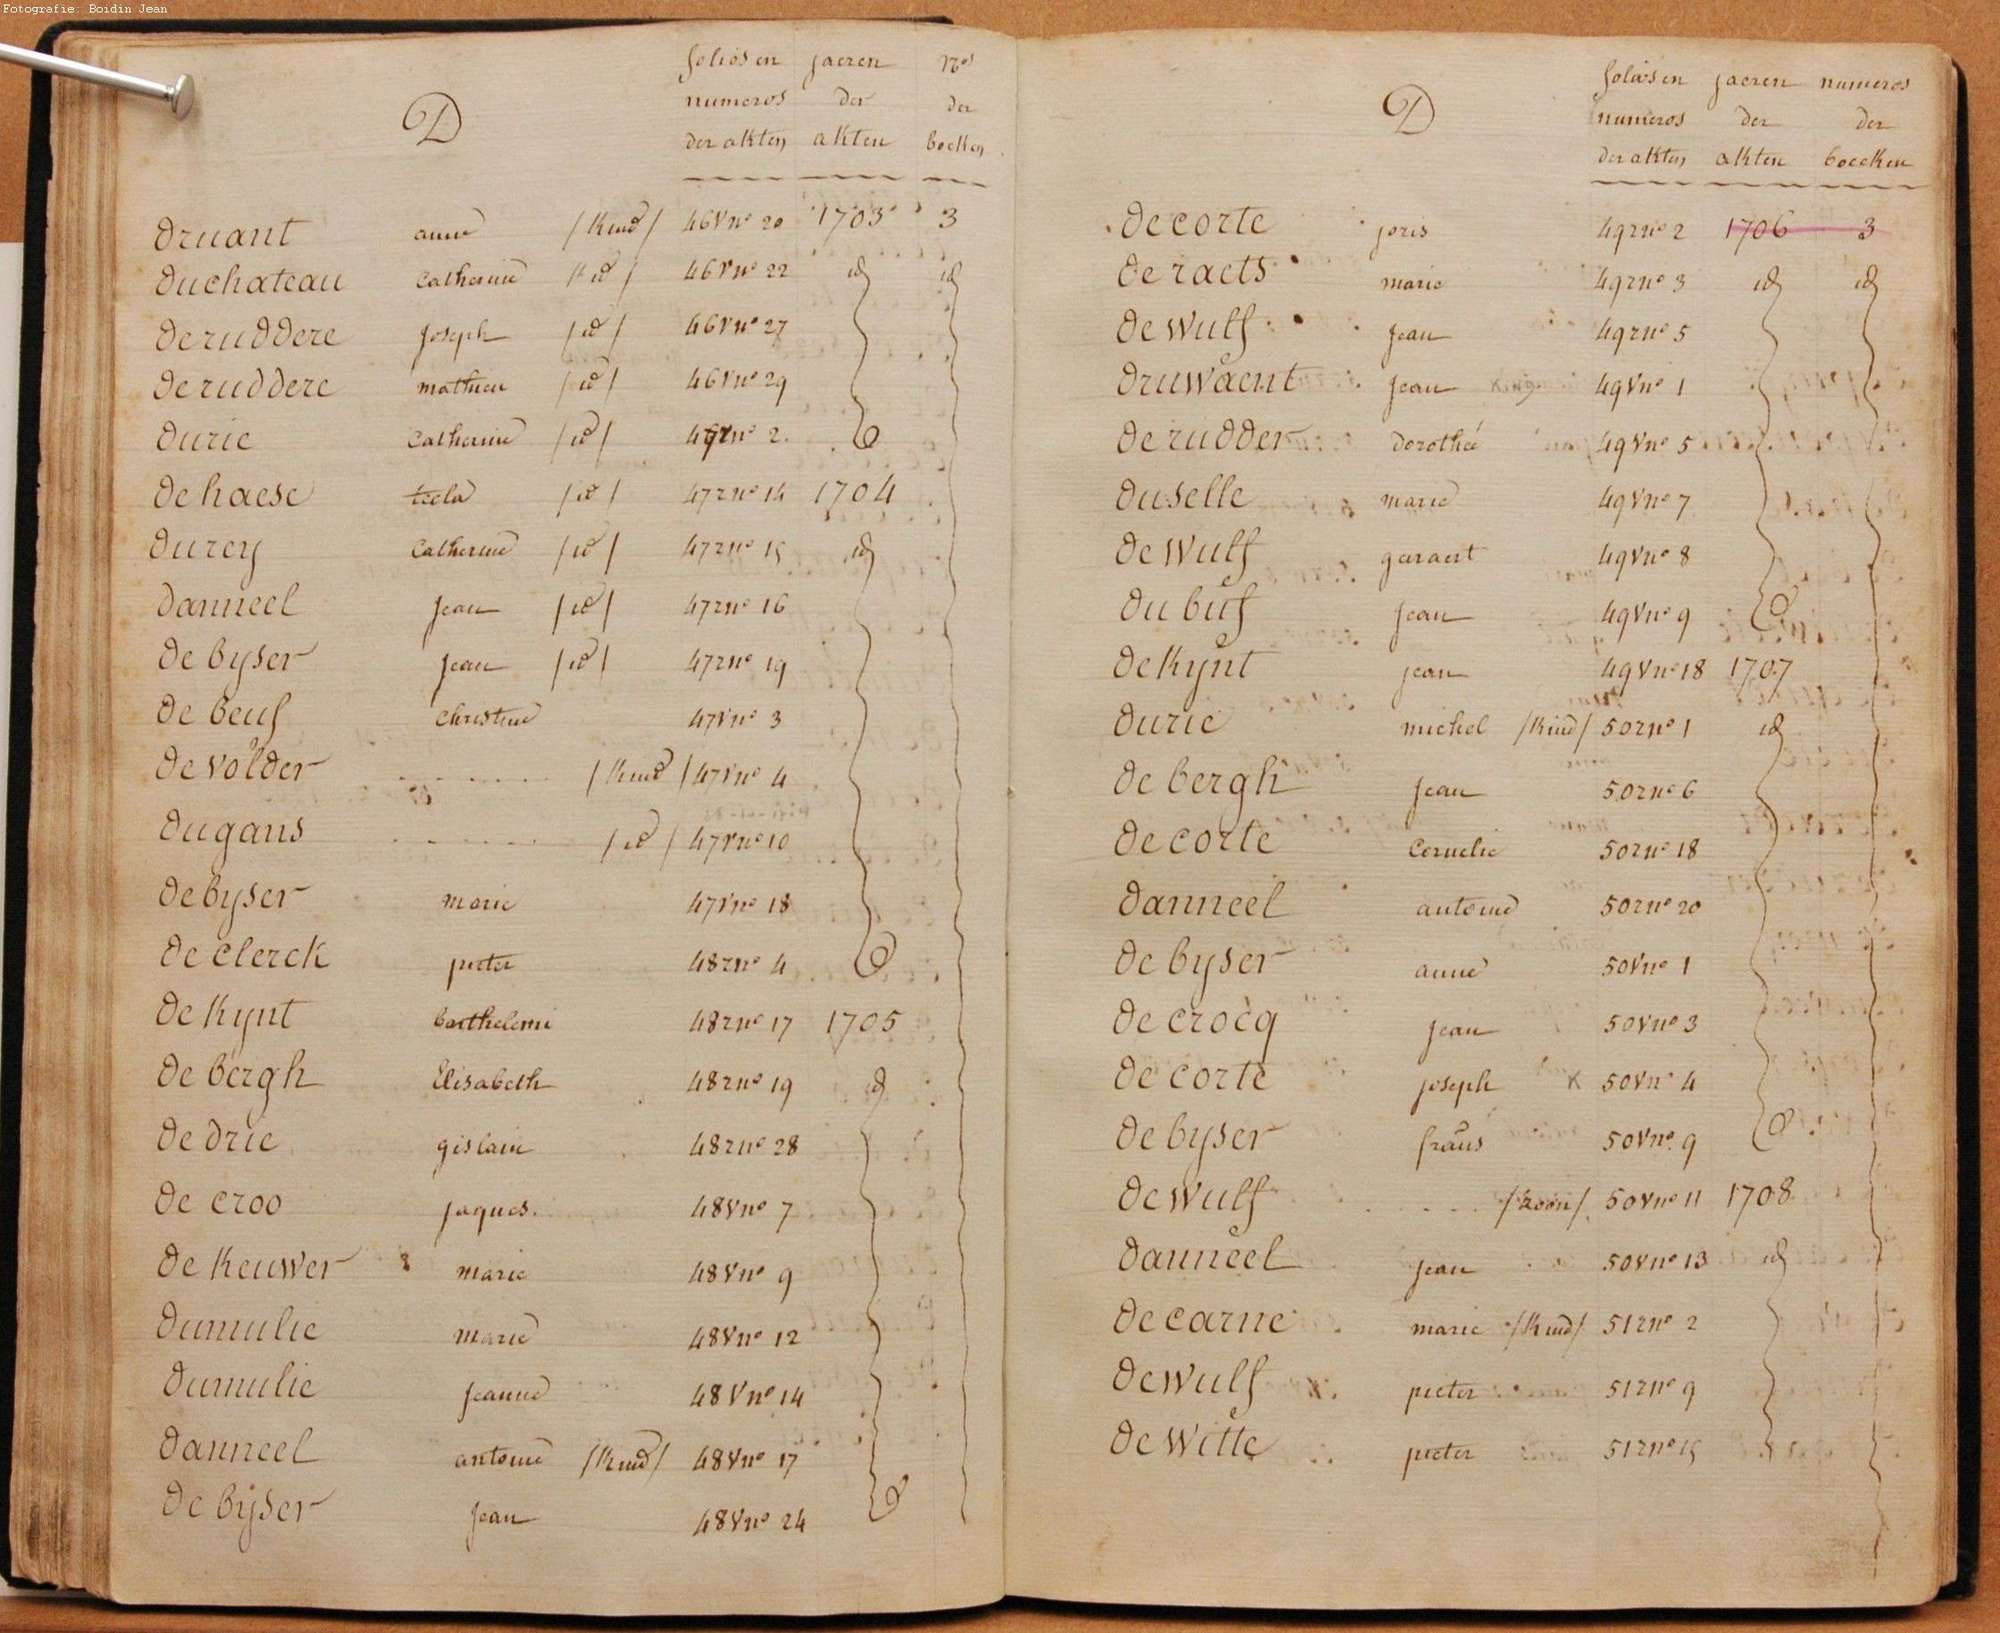 Fotografie: Boidin Jean
D
folios en jaeren Nos
numeros der der
der akten akten boeken
Druant anne /Kind/ 46 V no 20 1703 3
Duchateau Catherine /id/ 46 V no 22 id id
De ruddere Joseph /id/ 46 V no 27
De ruddere mathieu /id/ 46 V no 29
Durie Catherine /id/ 47 r no 2
De haese tecla /id/ 47 r no 14 1704
Durey Catherine /id/ 47 r no 15 id
Danneel Jean /id/ 47 r no 16
De byser Jean /id/ 47 r no 19
De beuf Christine 47 V no 3
De Volder /Kind/ 47 V no 4
Dugans /id/ 47 V no 10
De byser marie 47 V no 18
De Clerck pieter 48 r no 4
De Kynt barthelemi 48 r no 17 1705
De bergh Elisabeth 48 r no 19 id
De Drie gislain 48 r no 28
De Croo jaques 48 V no 7
De Keuwer marie 48 V no 9
Dumulie marie 48 V no 12
Dumulie Jeanne 48 V no 14
Danneel antoine /Kind/ 48 V no 17
De byser Jean 48 V no 24
D
folios en jaeren numeros
numeros der der
der akten akten boecken
De corte joris 49 r no 2 1706 3
De raets marie 49 r no 3 id id
De Wulf Jean 49 r no 5
Druwaent Jean 49 V no 1
De rudder dorothée 49 V no 5
Duselle marie 49 V no 7
De Wulf geraert 49 V no 8
Du buf Jean 49 V no 9
De Kynt Jean 49 V no 18 1707
Durie michel /Kind/ 50 r no 1 id
De bergh Jean 50 r no 6
De corte Cornelie 50 r no 18
Danneel antoine 50 r no 20
De byser anne 50 V no 1
De Crocq Jean 50 V no 3
De corte joseph X 50 V no 4
De byser frans 50 V no 9
De Wulf /zoon/ 50 V no 11 1708
Danneel Jean 50 V no 13 id
De carne marie /Kind/ 51 r no 2
De Wulf pieter 51 r no 9
De Witte pieter 51 r no 15